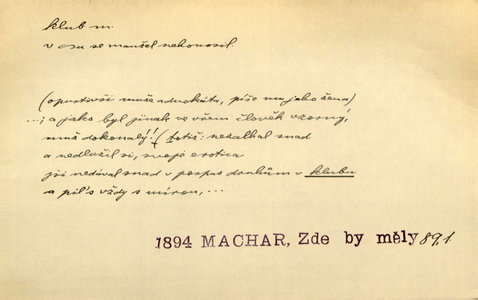 klub m.
v osu se manžel nehonosil.
(opustivši muže advokáta, píše mu jako žena)
...; a jako byl jinak ve všem člověk vzorný,
muž dokonalý! (totiž: nesalhal snad
a nedlužil si, svojě erotica
jsi nedával snad v pospas druhům v klubu
a pil's vždy s mírou, ...
1894 MACHAR, Zde by měly 89,1